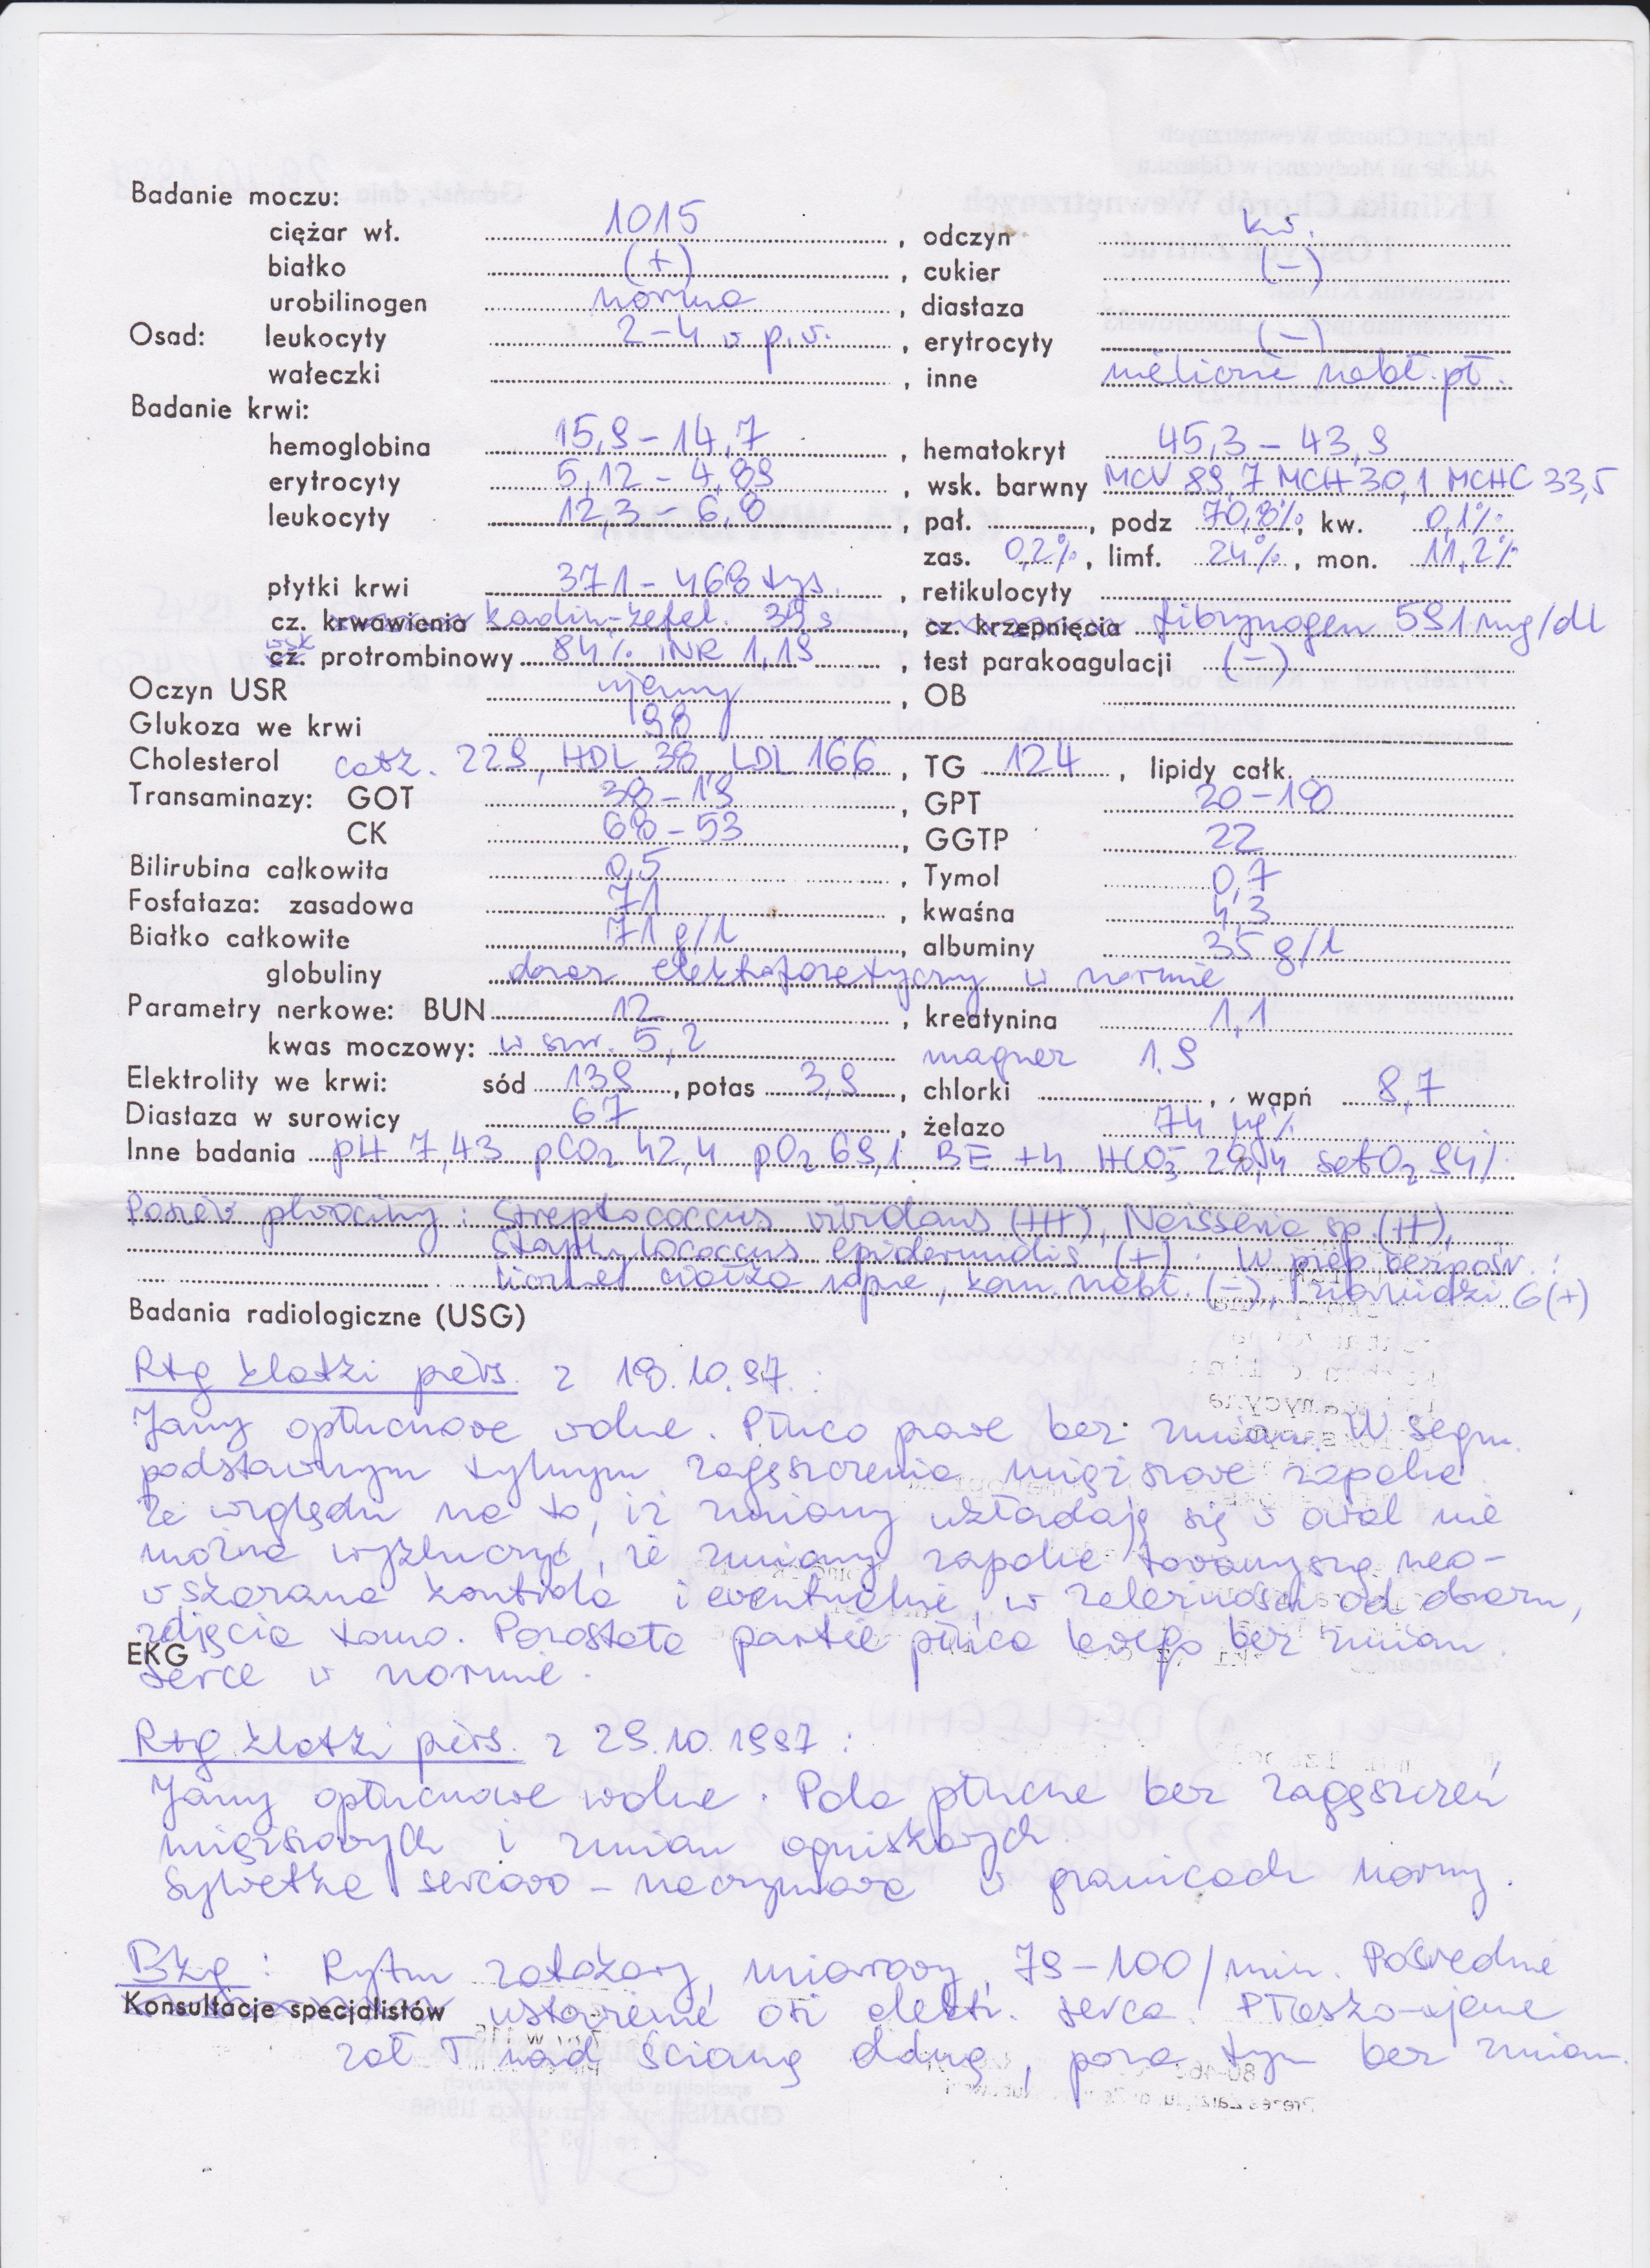 Badanie moczu:
ciężar wł. 1015, odczyn kw.
białko (+), cukier (-)
urobilinogen norma, diastaza
Osad: leukocyty 2-4 w p.w., erytrocyty (-)
wałeczki, inne nieliczne nabł. pł.
Badanie krwi:
hemoglobina 15,9-14,7, hematokryt 45,3-43,9
erytrocyty 5,12-4,89, wsk. barwny MCV 89,7 MCH 30,1 MCHC 33,5
leukocyty 12,3-6,8, pał., podz 70,8%, kw. 0,1%
zas. 0,2%, limf. 24%, mon. 11,2%
płytki krwi 371-468 tys., retikulocyty
cz. krwawienia kaolin-kefal. 39 s, cz. krzepnięcia fibrynogen 591 mg/dl
wsk cz. protrombinowy 84% INR 1,19, test parakoagulacji (-)
Oczyn USR ujemny, OB
Glukoza we krwi 98
Cholesterol całk. 229, HDL 38 LDL 166, TG 124, lipidy całk.
Transaminazy: GOT 38-19, GPT 20-18
CK 68-53, GGTP 22
Bilirubina całkowita 0,5, Tymol 0,7
Fosfataza: zasadowa 71, kwaśna 4,3
Białko całkowite 71 g/l, albuminy 35 g/l
globuliny obraz elektroforetyczny w normie
Parametry nerkowe: BUN 12, kreatynina 1,1
kwas moczowy: w sur. 5,2 magnez 1.9
Elektrolity we krwi: sód 139, potas 3,9, chlorki, wapń 8,7
Diastaza w surowicy 67, żelazo 74 µg%
Inne badania pH 7,43 pCO2 42,4 pO2 69,1 BE +4 HCO3- satO2 94%
Posiew plwociny: Streptococcus viridans (+++), Neisseria sp. (++),
Staphylococcus epidermidis (+). W prep. bezpośr.:
liczne ciałka ropne, kom. nabł. (-), G(+)
Badania radiologiczne (USG)
Rtg klatki piers. z 18.10.97.:
Jamy opłucnowe wolne. Płuco prawe bez zmian. W segm.
podstawnym tylnym zagęszczenia miąższowe zapalne.
Ze względu na to, iż zmiany układają się w owal nie
można wykluczyć, że zmiany zapalne towarzyszą neo-
wskazana kontrola i ewentualnie, w zależności od obrazu,
zdjęcia tomo. Pozostałe partie płuca lewego bez zmian.
EKG
Serce w normie.
Rtg klatki piers. z 29.10.1997:
Jamy opłucnowe wolne. Pola płucne bez zagęszczeń
miąższowych i zmian ogniskowych.
Sylwetka sercowo-naczyniowa w granicach normy.
Ekg: Rytm zatokowy, miarowy, 79-100/min. Pośrednie
Konsultacje specjalistów ustawienie osi elektr. serca. Płasko-ujemne
zał T nad ścianą dolną, poza tym bez zmian.